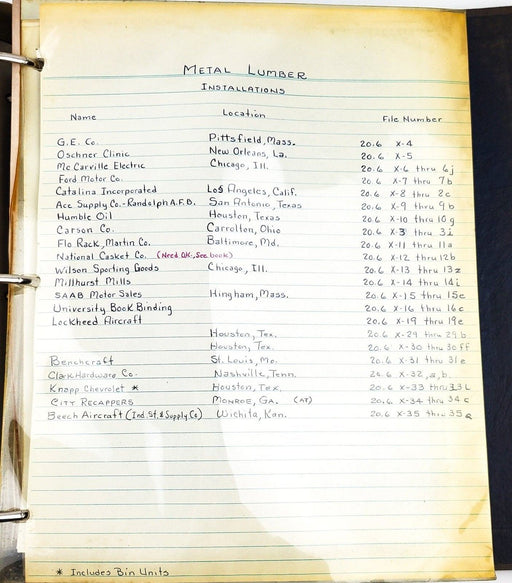 METAL LUMBER
INSTALLATIONS
Name Location File Number
G.E. Co. Pittsfield, Mass. 20.6 X-4
Oschner Clinic New Orleans, La. 20.6 X-5
McCarville Electric Chicago, Ill. 20.6 X-6 thru 6j
Ford Motor Co. 20.6 X-7 thru 7b
Catalina Incorporated Los Angeles, Calif. 20.6 X-8 thru 2c
Ace Supply Co.-Randolph A.F.B. San Antonio, Texas 20.6 X-9 thru 9b
Humble Oil Houston, Texas 20.6 X-10 thru 10g
Carson Co. Carrollon, Ohio 20.6 X-3 thru 3i
Flo Rack, Martin Co. Baltimore, Md. 20.6 X-11 thru 11a
National Casket Co. (Need OK, See book) 20.6 X-12 thru 12b
Wilson Sporting Goods Chicago, Ill. 20.6 X-13 thru 13z
Millhurst Mills 20.6 X-14 thru 14i
SAAB Motor Sales Hingham, Mass. 20.6 X-15 thru 15e
University Book Binding 20.6 X-16 thru 16c
Lockheed Aircraft 20.6 X-19 thru 19e
Houston, Tex. 20.6 X-29 thru 29b
Houston, Tex. 20.6 X-30 thru 30ff
Benchcraft St. Louis, Mo. 20.6 X-31 thru 31e
Clark Hardware Co. Nashville, Tenn. 20.6 X-32, a, b.
Knapp Chevrolet * Houston, Tex. 20.6 X-33 thru 33L
CITY RECAPPERS MONROE, GA. (AT) 20.6 X-34 thru 34c
Beech Aircraft (Ind. St. & Supply Co) Wichita, Kan. 20.6 X-35 thru 35a
* Includes Bin Units